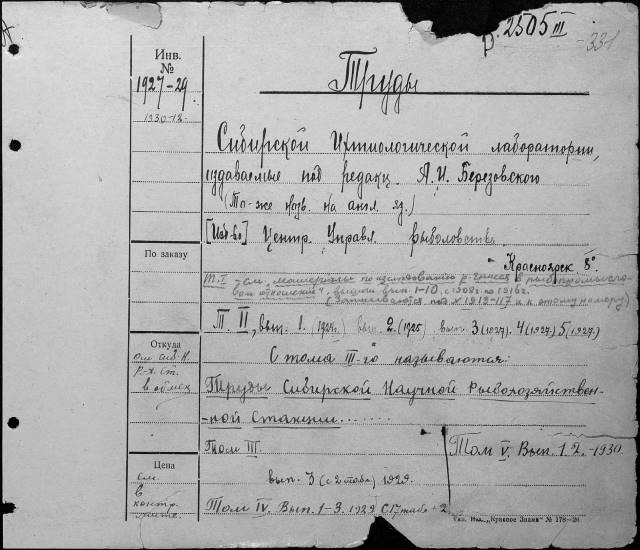 р. 2505 III
-331
Инв.
№
1927-29
1930-12
Труды
Сибирской Ихтиологической лаборатории,
издаваемые под редакц. А.И. Березовского
(То-же назв. на англ. яз.)
[Изд-во] Центр. Управл. рыболовства.
Красноярск 8°
По заказу
Т. I - см. материалы по исследованию р. Енисея в рыбопромысло-
вом отношении", вышли вып. 1-10, с 1908г. по 1916г.
(записываются под № 1913-117 и к этому номеру)
Т. II, вып. 1. (1924.) вып. 2. (1925) вып. 3 (1927). 4 (1927) 5 (1927.)
Откуда
от Сиб. Н.
Р.-х. ст.
в обмен
С тома III-го называются:
Труды Сибирской Научной Рыбохозяйствен-
-ной Станции......
Том III.
вып. 3 (с 2 табл) 1929.
Том V. Вып. 1. 2. -1930.
Цена
см.
в
контр.
Том IV. Вып. 1-3. 1929 С 17 табл + 2
Тип. Изд. „Красное Знамя" № 178-26